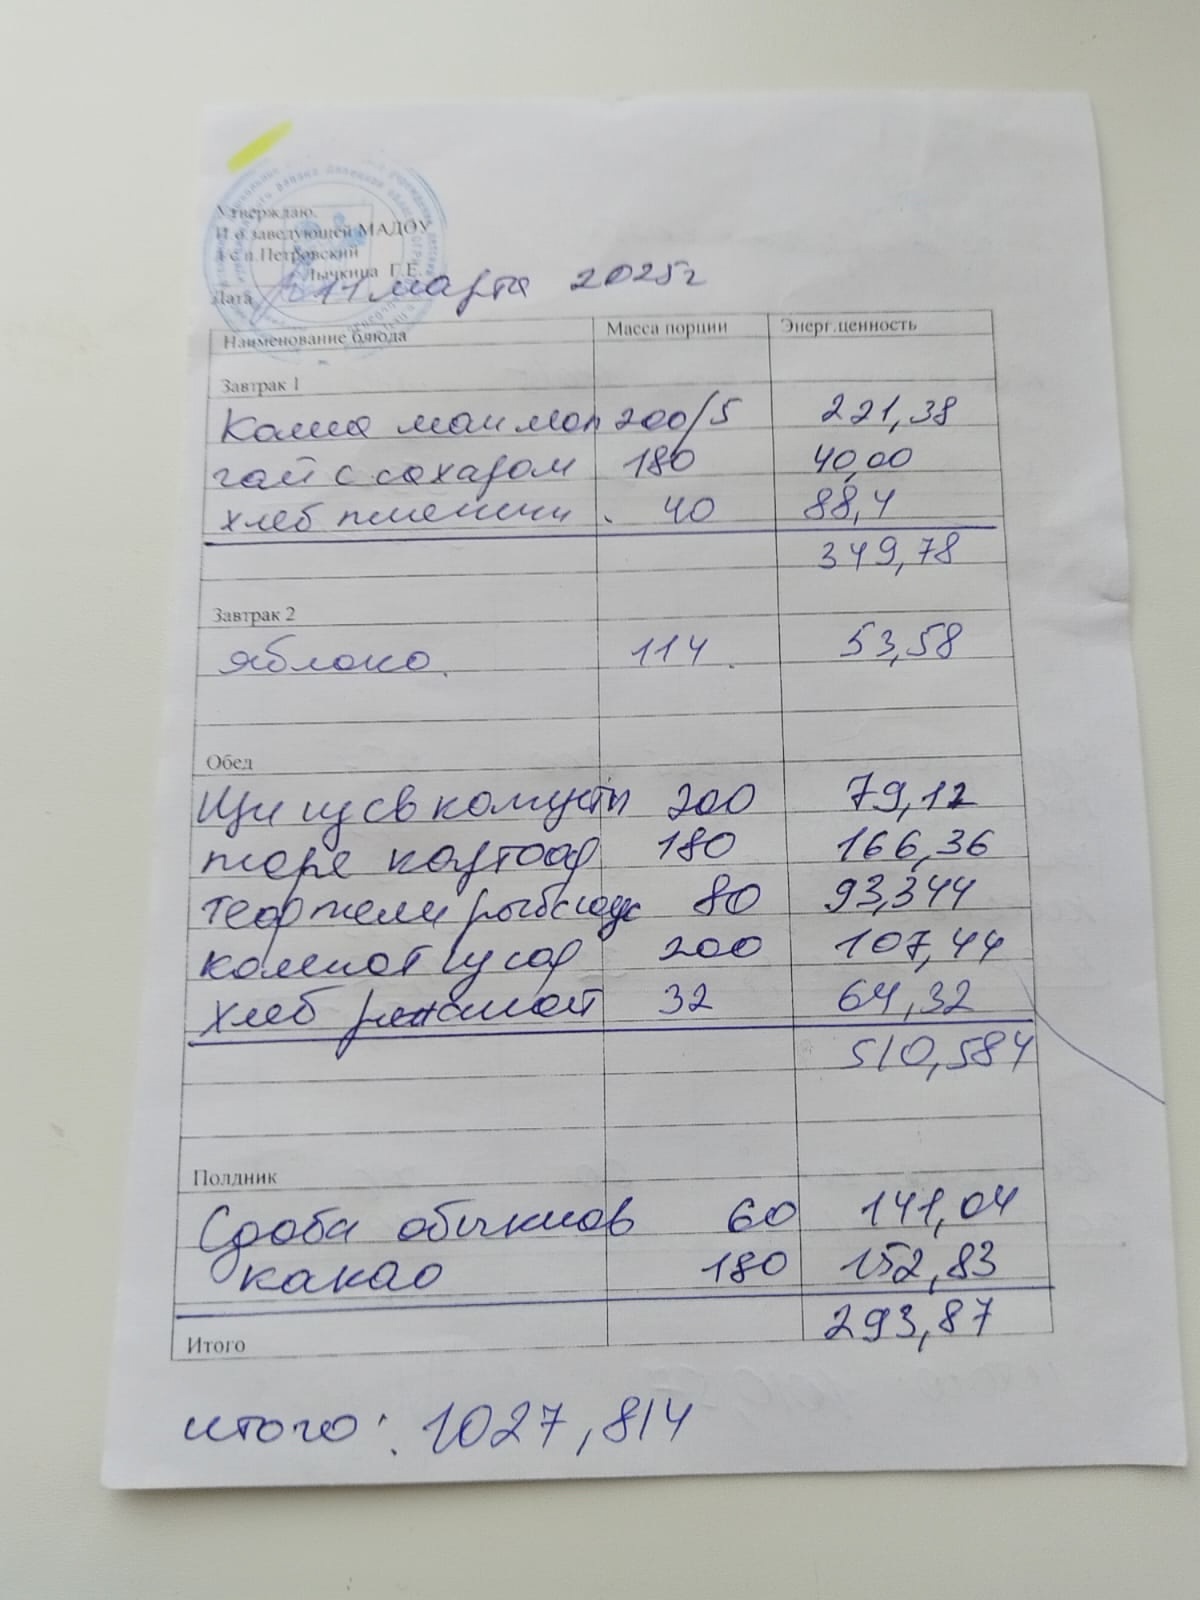 Утверждаю.
И.о.заведующей МАДОУ
д/с п.Петровский
Лычкина Г.Е.
Дата 11 марта 2025г
Наименование блюда Масса порции Энерг.ценность
Завтрак 1
Каша ман мол 200/5 221,38
чай с сахаром 180 40,00
хлеб пшенич. 40 88,4
349,78
Завтрак 2
яблоко. 114. 53,58
Обед
Щи из св капусты 200 79,12
пюре картоф 180 166,36
80 93,344
компот из 200 107,44
хлеб 32 64,32
510,584
Полдник
Сдоба обыкнов 60 141,04
какао 180 152,83
293,87
Итого
итого: 1027,814